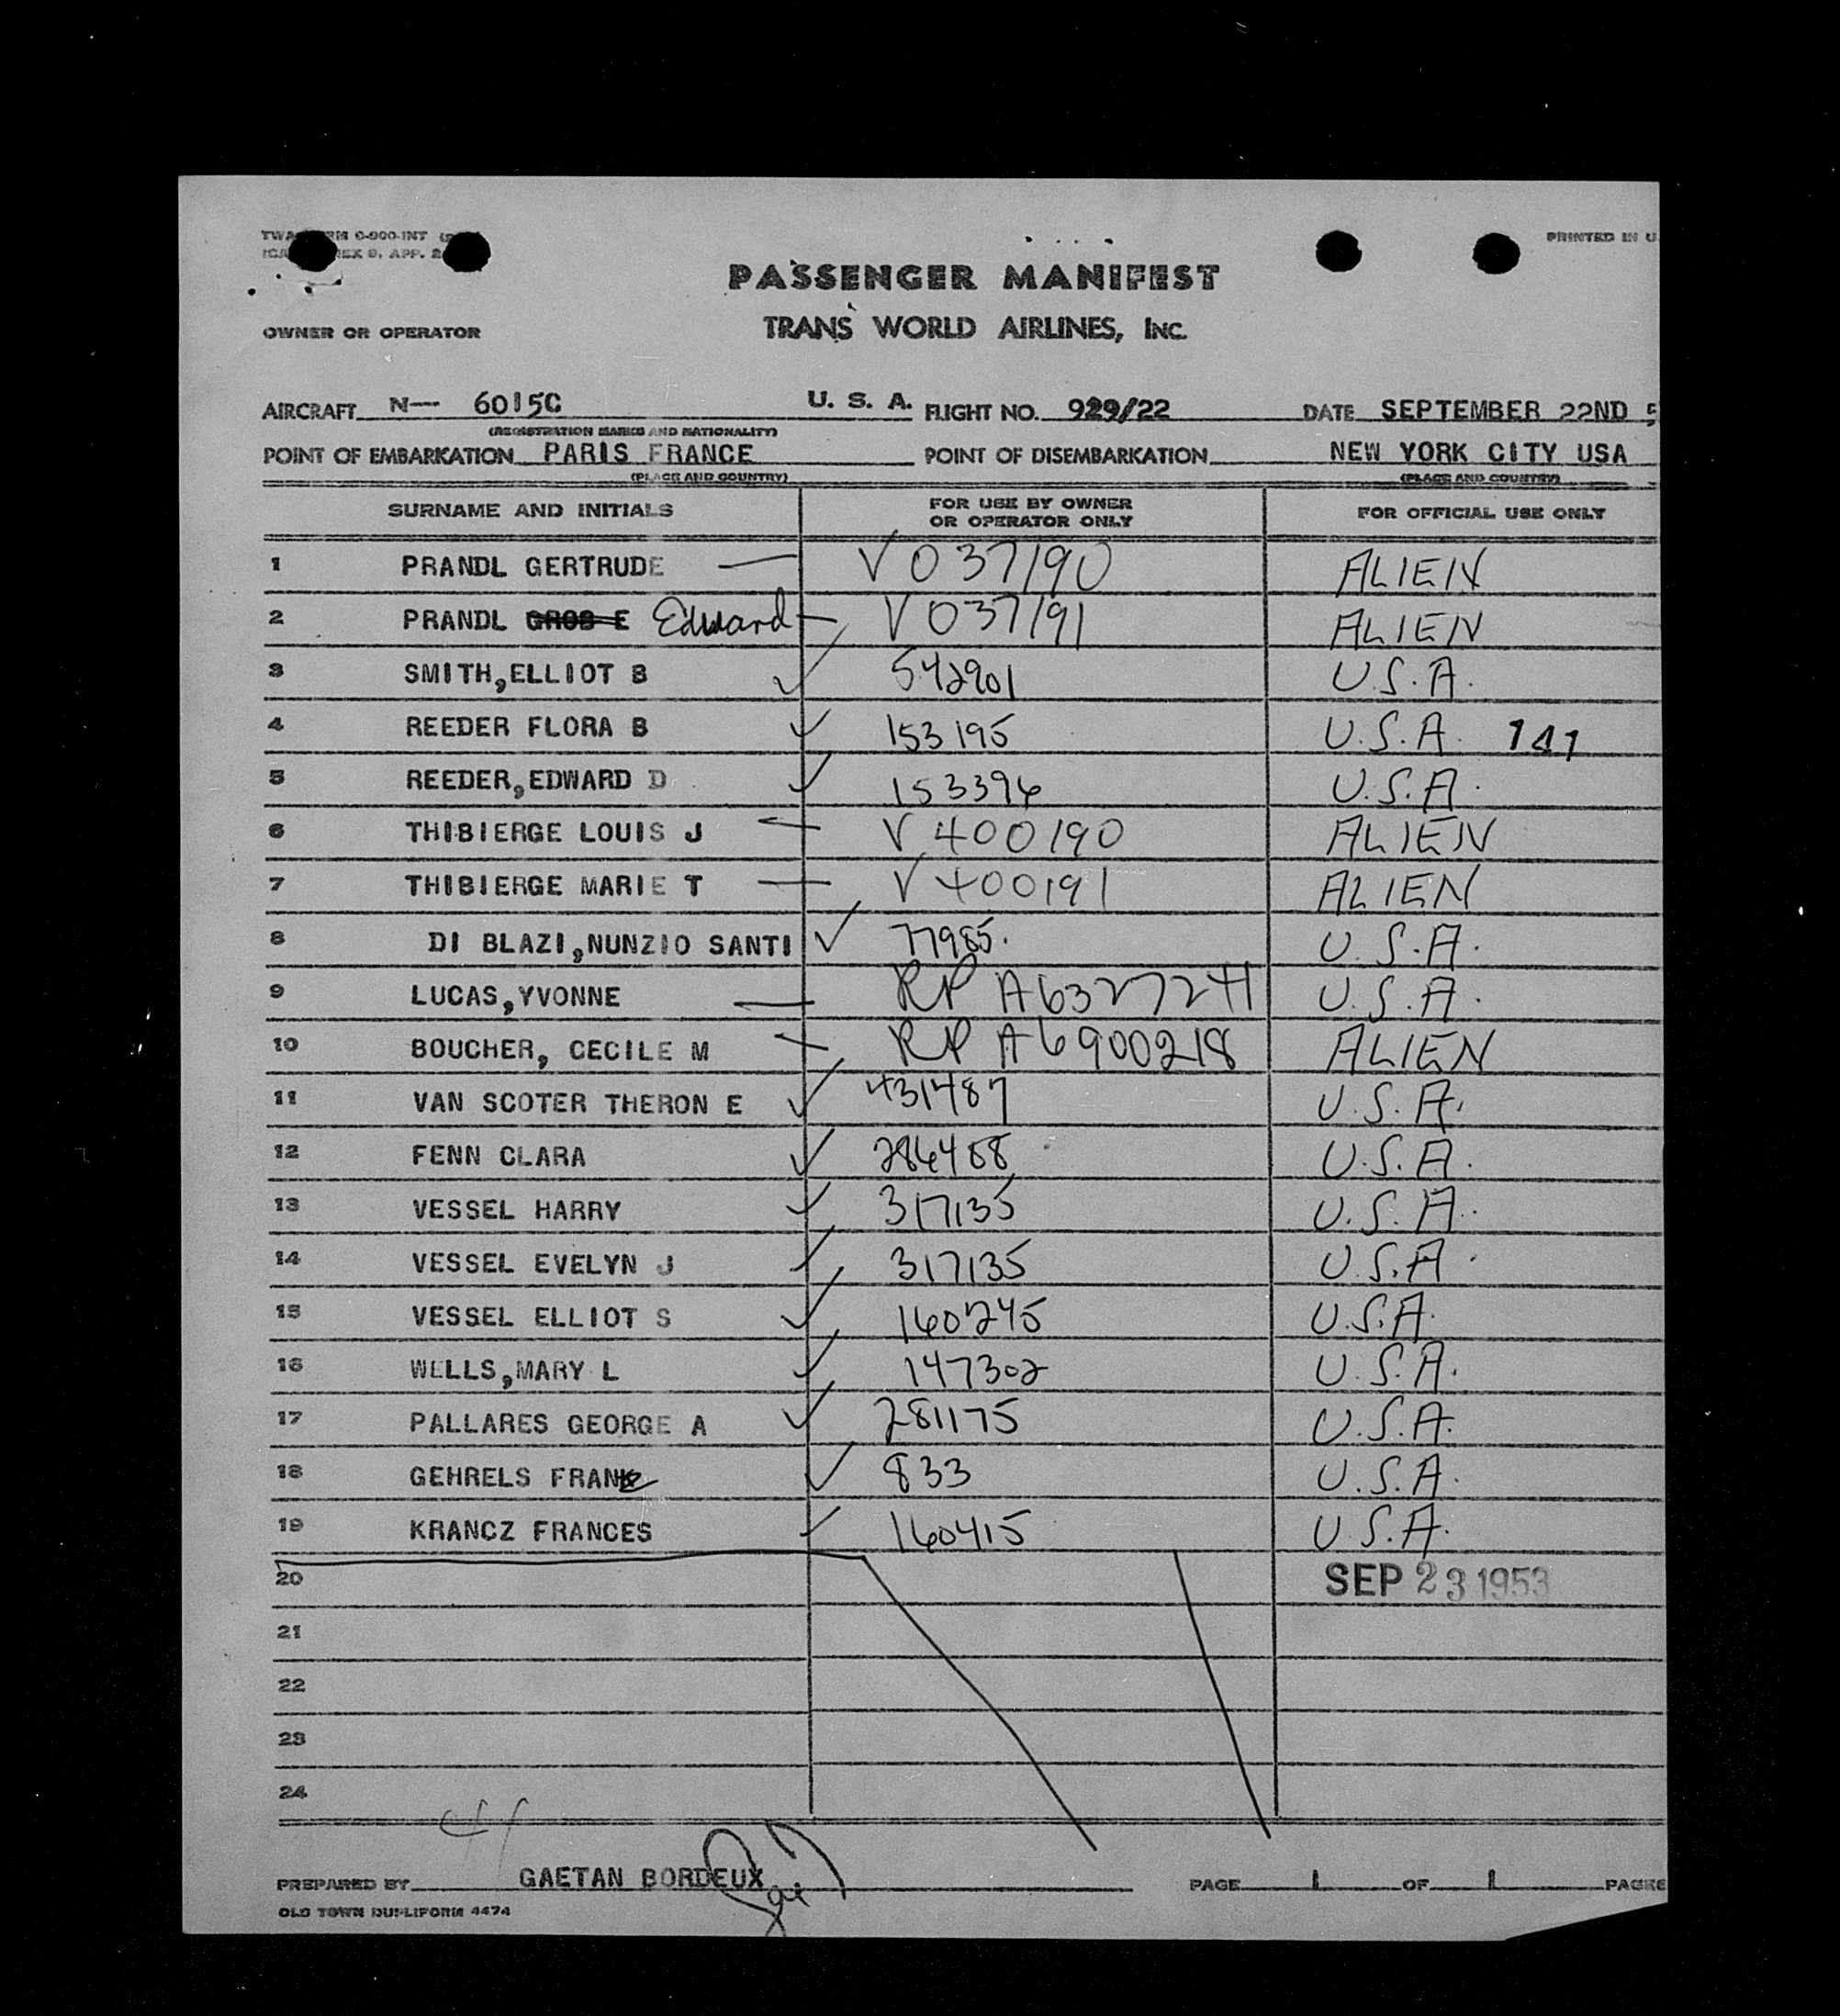 PRINTED IN U
PASSENGER MANIFEST
TRANS WORLD AIRLINES, INC.
OWNER OR OPERATOR
AIRCRAFT N— 6015C U. S. A. FLIGHT NO. 929/22 DATE SEPTEMBER 22ND 5
(REGISTRATION MARKS AND NATIONALITY)
POINT OF EMBARKATION PARIS FRANCE POINT OF DISEMBARKATION NEW YORK CITY USA
(PLACE AND COUNTRY) (PLACE AND COUNTRY)
SURNAME AND INITIALS FOR USE BY OWNER OR OPERATOR ONLY FOR OFFICIAL USE ONLY
1 PRANDL GERTRUDE — V 037190 ALIEN
2 PRANDL Edward — V 037191 ALIEN
3 SMITH,ELLIOT B ✓ 542901 U.S.A.
4 REEDER FLORA B ✓ 153195 U.S.A. 141
5 REEDER,EDWARD D ✓ 153396 U.S.A.
6 THIBIERGE LOUIS J — V 400190 ALIEN
7 THIBIERGE MARIE T — V 400191 ALIEN
8 DI BLAZI,NUNZIO SANTI ✓ 77985. U.S.A.
9 LUCAS,YVONNE — RP A6327241 U.S.A.
10 BOUCHER, CECILE M — RP A6900218 ALIEN
11 VAN SCOTER THERON E ✓ 431487 U.S.A.
12 FENN CLARA ✓ U.S.A.
13 VESSEL HARRY ✓ 317135 U.S.A.
14 VESSEL EVELYN J ✓ 317135 U.S.A.
15 VESSEL ELLIOT S ✓ 160245 U.S.A.
16 WELLS,MARY L ✓ 147302 U.S.A.
17 PALLARES GEORGE A ✓ 281175 U.S.A.
18 GEHRELS FRANK ✓ 833 U.S.A.
19 KRANCZ FRANCES ✓ 160415 U.S.A.
20 SEP 23 1953
21
22
23
24
PREPARED BY GAETAN BORDEUX PAGE 1 OF 1 PAGES
OLD TOWN DUPLIFORM 4474